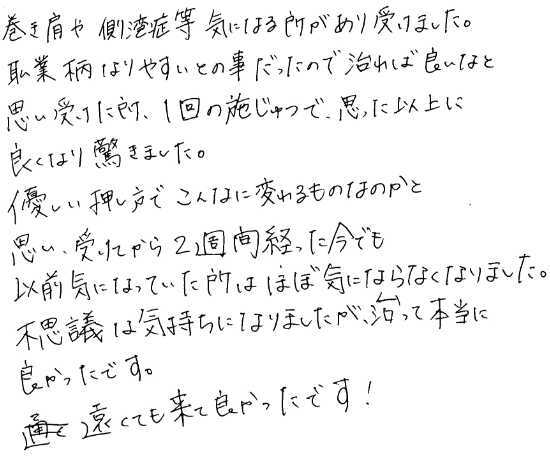 巻き肩や 側湾症等 気になる所があり受けました。
職業柄なりやすいとの事だったので治れば良いなと
思い受けた所、1回の施じゅつで、思った以上に
良くなり驚きました。
優しい押し方でこんなに変わるものなのかと
思い、受けてから2週間経った今でも
以前気になっていた所はほぼ気にならなくなりました。
不思議な気持ちになりましたが、治って本当に
良かったです。
遠くても来て良かったです!